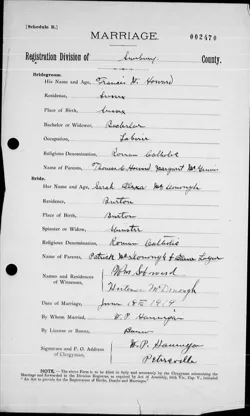 [Schedule B.]
MARRIAGE. 002470
Registration Division of Sunbury County.
Bridegroom:
His Name and Age, Francis W. Howard
Residence,
Place of Birth,
Bachelor or Widower, Bachelor
Occupation, Laborer
Religious Denomination, Roman Catholic
Name of Parents, Thomas Howard Margaret
Bride.
Her Name and Age, Sarah McDonough
Residence, Burton
Place of Birth, Burton
Spinster or Widow, Spinster
Religious Denomination, Roman Catholic
Name of Parents, Patrick McDonough &
Names and Residences
of Witnesses, Howard
McDonough
Date of Marriage, June 18th 1919
By Whom Married, W. P. Hannigan
By License or Banns, Banns
Signature and P. O. Address
of Clergyman, W. P. Hannigan
Petersville
NOTE.—The above Form is to be filled in fully and accurately by the Clergyman solemnizing the
Marriage and forwarded to the Division Registrar, as required by Act of Assembly,
"An Act to provide for the Registration of Births, Deaths and Marriages."